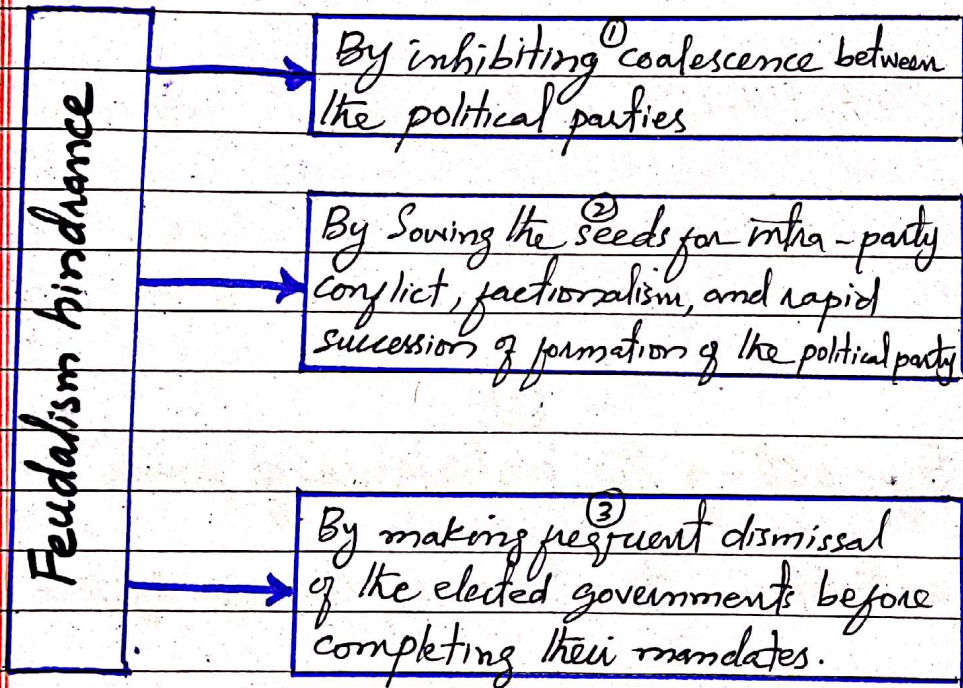 Feudalism hindrance
①
By inhibiting coalescence between
the political parties
②
By Sowing the seeds for intra-party
conflict, factionalism, and rapid
succession of formation of the political party
③
By making frequent dismissal
of the elected governments before
completing their mandates.